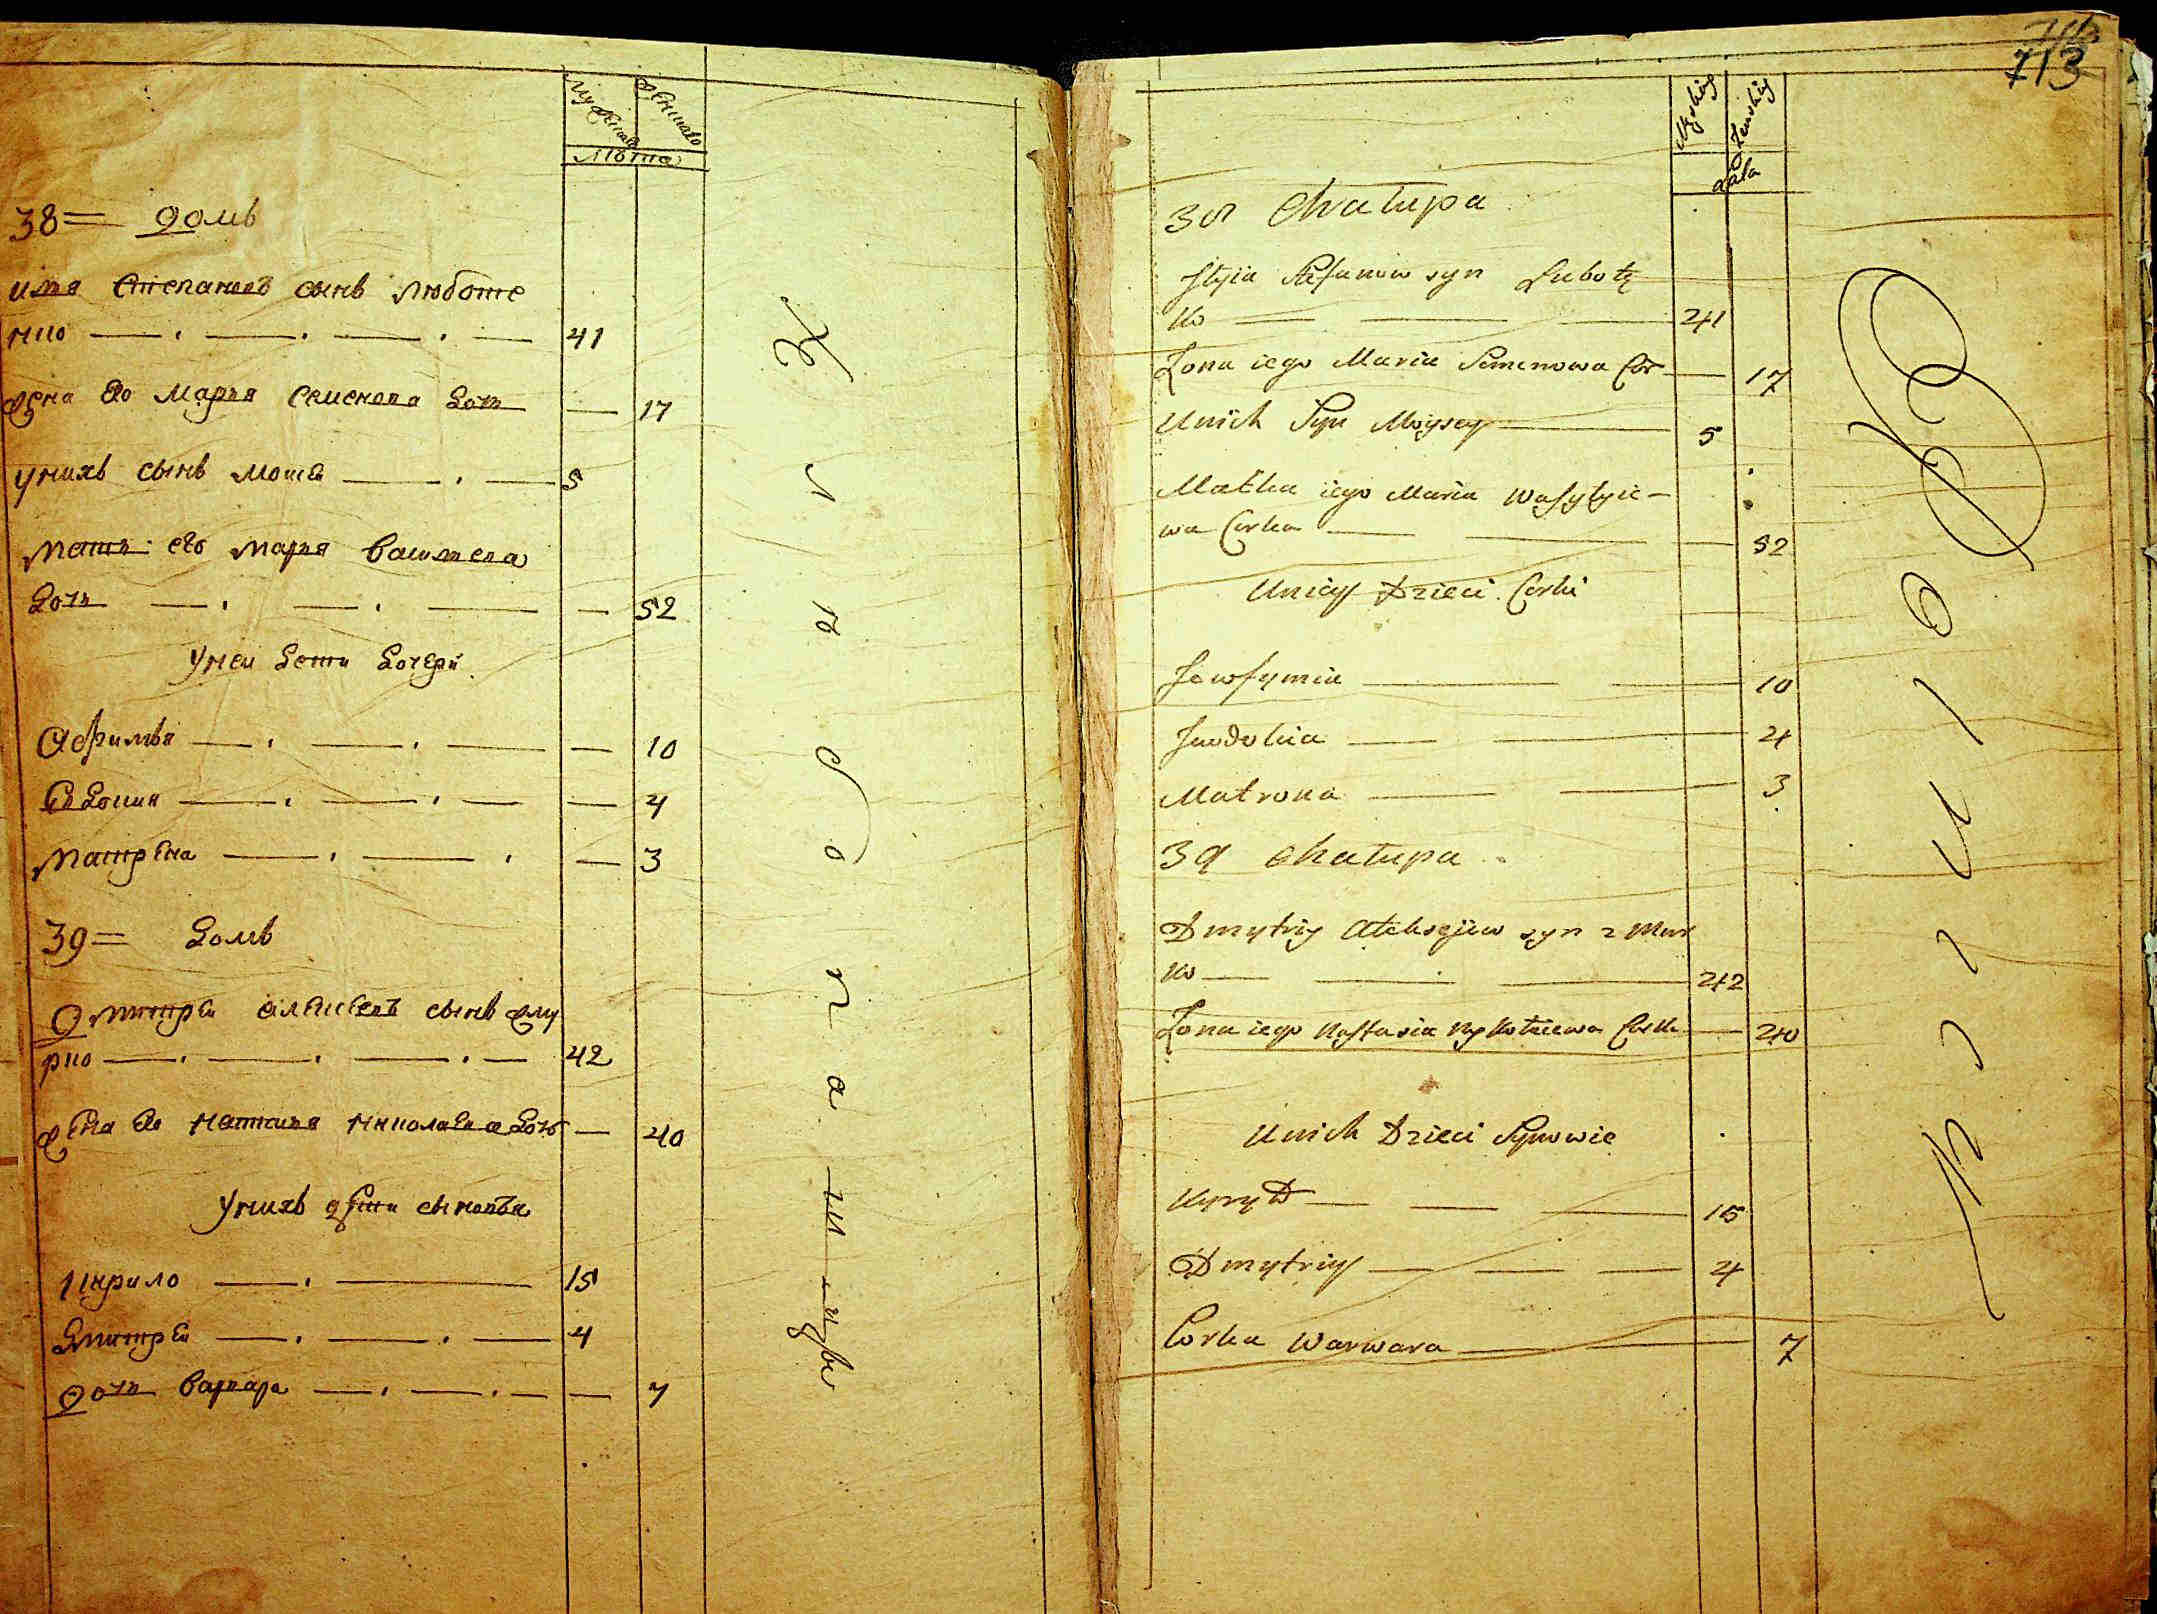 Мужеска Женска
Лѣта
38= домъ
Илiя Степановъ сынъ Люботе
нко 41
Жена Его Марья Семенова дочь 17
У нихъ сынъ Мосей 5
Мать его Марья Василева
дочь 52
У неи дети дочери
Афимья 10
Евдокия 4
Матрена 3
39= домъ
Дмитрей Алексеевъ сынъ Жму
рко 42
Жена Его Настасья Николаева дочь 40
У нихъ дети сыновья
Кирило 15
Дмитрей 4
Дочь Варвара 7
713
Męskiey Żenskiey
Lata
38 Chałupa
Ilyia Stefanow syn Lubotę
ko 41
Żona iego Maria Semenowa Cor 17
U nich Syn Moysey 5
Matka iego Maria Wasylyie-
wa Corka 52
U niey Dzieci Corki
Jewfymia 10
Jewdokia 4
Matrona 3
39 Chałupa
Dmytriy Aleksejiew syn Zmur
ko 42
Żona iego Nastasia Nykołaiewa Cork 40
U nich Dzieci Synowie
Kyryło 15
Dmytriy 4
Corka Warwara 7